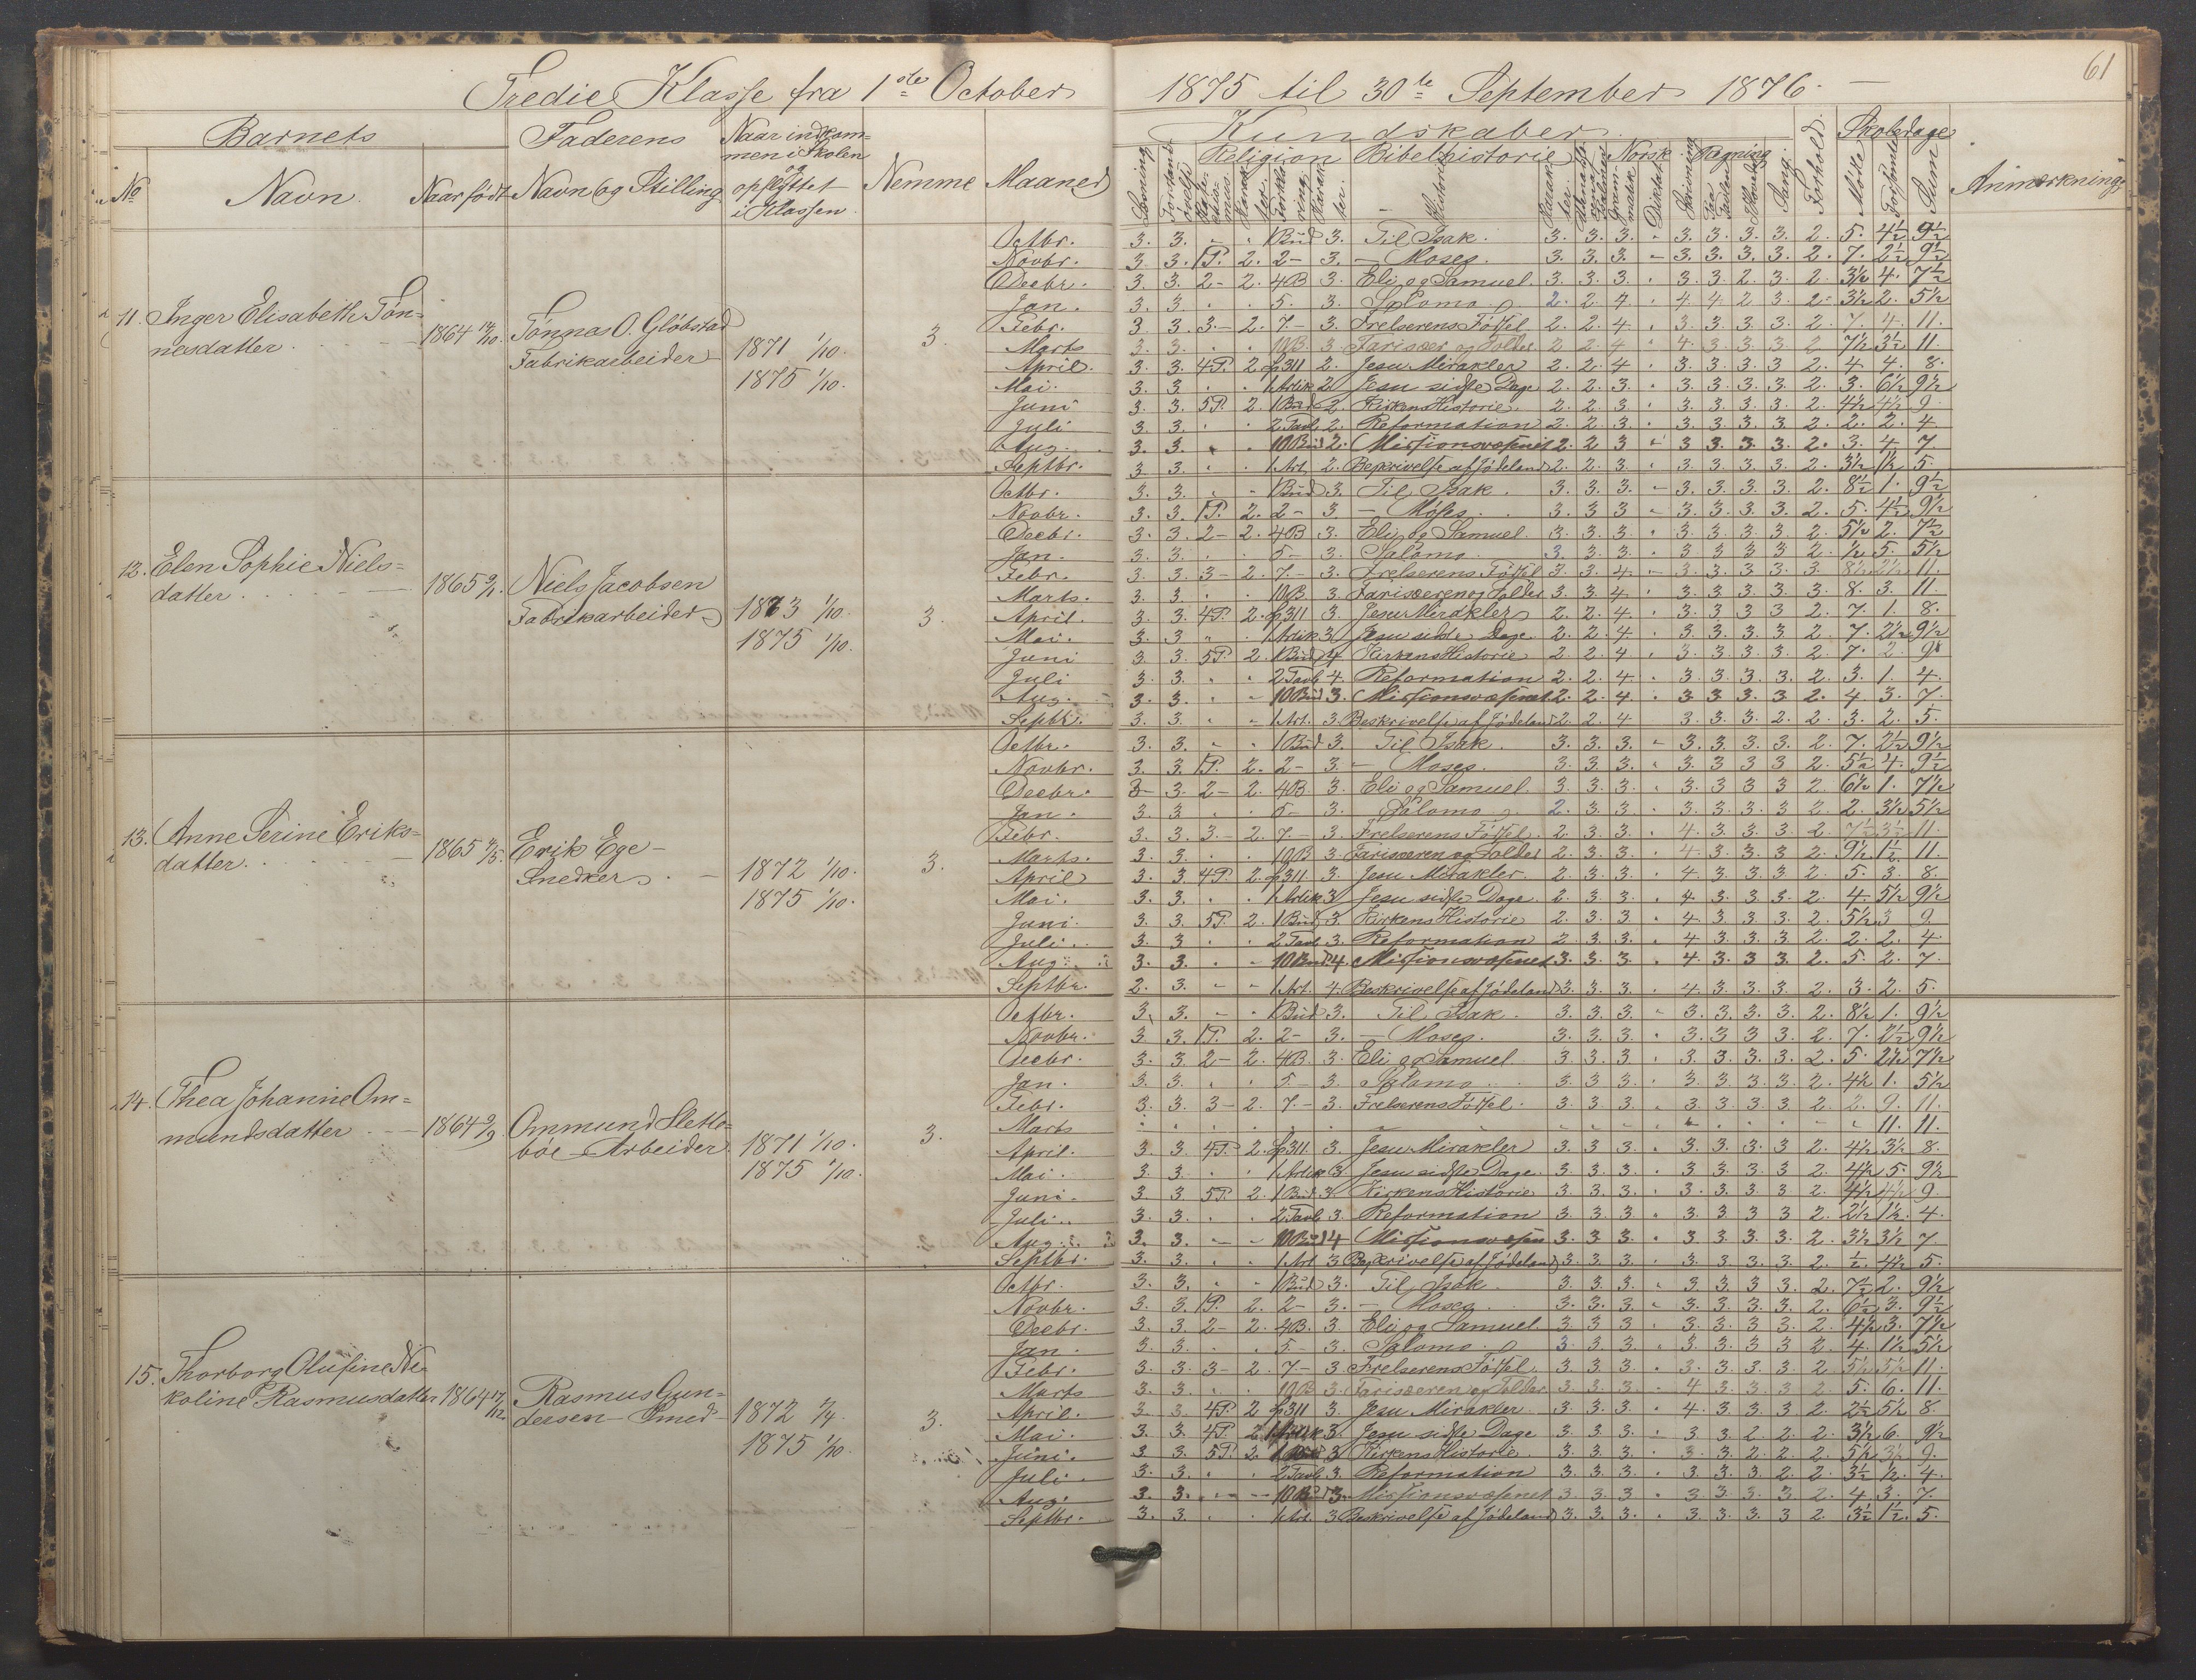 Tredie Klasse fra 1ste October 1875 til 30te September 1876.
61
Barnets
Faderens
Naar indkom=
men i Skolen
og
opflyttet
i Klassen.
Nemme
Maaned
No
Navn.
Naar født
Navn og Stilling
Kundskaber.
Religion
Bibelhistorie
Norsk
Regning
Skoledage
Læsning
Historie
Diktat
Skrivning
Sang.
Forhold.
Mødte
Forsømte
Sum
Anmærkning.
11. Inger Elisabeth Tøn=
nesdatter.
Tønnas O. Gløbstad
Fabrikarbeider
1871 1/10.
1875 1/10.
3.
Octbr. 3. 3. 1 Bud 3. Til Isak. 3. 3. 3. 3. 3. 3. 3. 2. 5. 4½ 9½
Novbr. 3. 3. 1P. 2. 2- 3. - Moses. 3. 3. 3. - 3. 3. 3. 3. 2. 7. 2½ 9½
Decbr. 3. 3. 2- 2. 4B 3. Eli og Samuel. 3. 3. 3. 3. 3. 2. 3. 2. 3½ 4. 7½
Jan. 3. 3. 5. 3. Salomo. 2. 2. 4. 4. 4 2 3. 2- 3½ 2. 5½
Febr. 3 3. 3.- 2. 7.- 3. Frelserens Fødsel 2. 2. 4. 3. 3. 3. 3. 2. 7. 4. 11.
Marts 3. 3. 10B. 3. Farisæer og Tolder 2 2. 4 4. 3. 3. 3 2 7½ 3½ 11.
April. 3. 3. 4P. 2. 311 2. Jesu Mirakler 2. 2. 4 3. 3. 3. 3 2. 4 4. 8.
Mai. 3. 3. 1 Artik 2. Jesu sidste Dage 2. 2. 3. 3. 3. 3. 3. 2. 3. 6½ 9½
Juni 3. 3. 5P. 2. 1 Bud 2. Kirkens Historie. 2. 2. 3. 3. 3. 3. 3. 2. 4½ 4½ 9
Juli 3. 3. 2 Tavl 2. Reformation 2. 2. 3. 3. 3. 3. 3. 2. 2. 2. 4
Aug. 3. 3. 10 Bud 2. Missionsvæsenet 2. 2 3 3 3. 3. 3. 2. 3. 4. 7
Septbr. 3. 3. 1 Art. 2. Beskrivelse af Jødeland 2. 2. 3. 3. 3. 3. 3. 2. 3½ 1½ 5.
12. Elen Sophie Niels=
datter.
Niels Jacobsen
Fabrikarbeider
1873 1/10.
1875 1/10.
3.
Octbr. 3. 3. 1 Bud 3. Til Isak. 3. 3. 3. - 3. 3. 3. 3. 2. 8½ 1. 9½
Novbr. 3. 3. 1P. 2. 2- 3. - Moses. 3. 3. 3 - 3. 3. 3. 3. 2. 5. 4½ 9½
Decbr. 3. 3. 2- 2. 4B 3. Eli og Samuel. 3. 3. 3. 3. 3. 3. 3. 2. 5½ 2. 7½
Jan. 3. 3. 5- 3. Salomo. 3. 3. 3. 3. 3. 3. 3 2. ½ 5. 5½
Febr. 3. 3. 3- 2. 7.- 3. Frelserens Fødsel 3. 3. 4. - 3. 3. 3. 3. 3. 8½ 2½ 11.
Marts. 3. 3. 10B 3. Farisæeren og Tolder 3. 3 4. 3. 3. 3. 3. 3. 8. 3. 11.
April. 3. 3. 4P. 2. 311 3. Jesu Mirakler 2. 2. 4. 3. 3. 3. 3. 2. 7. 1. 8.
Mai. 3. 3 1 Artik 3. Jesu sidste Dage 2. 2. 4. 3. 3. 3. 3 2. 7. 2½ 9½
Juni 3. 3. 5P. 2. 1 Bud 4 Kirkens Historie 2. 2. 4. 3. 3. 3. 3. 2. 7. 2. 9
Juli 3. 3. 2 Tavl 4. Reformation 2. 2. 4. 3. 3. 3. 3. 2. 3. 1. 4.
Aug. 3. 3. 10 Bud 3. Missionsvæsenet 2. 2. 4. 3 3 3. 3 2. 4. 3. 7.
Septbr. 3. 3. 1 Art. 3. Beskrivelse af Jødeland 2. 2. 4 3. 3. 3. 2. 2. 3. 2. 5.
13. Anne Serine Eriks=
datter.
Erik Ege-
Snedker
1872 1/10.
1875 1/10.
3.
Octbr. 3. 3. 1 Bud 3. Til Isak. 3. 3. 3. - 3. 3. 3. 3. 2. 7. 2½ 9½
Novbr. 3. 3. 1P. 2. 2- 3. - Moses. 3. 3. 3. 3. 3 3 3 2. 5½ 4. 9½
Decbr. 3 3. 2- 2. 4B 3. Eli og Samuel. 3. 3. 3. 3. 3 3 3 2. 6½ 1. 7½
Jan. 3. 3. 5- 3. Salomo 2. 3. 3. 3. 3. 3. 3. 2. 2. 3½ 5½
Febr. 3. 3. 3.- 2. 7.- 3. Frelserens Fødsel. 2. 3. 3. 4. 3. 3. 3. 2. 7½ 3½ 11.
Marts. 3. 3. 10B 3. Farisæeren og Tolder 2. 3. 3. 4. 3. 3. 3 2. 9½ 1½ 11.
April 3. 3. 4P. 2. 311. 3. Jesu Mirakler. 2. 3. 3. 4. 3. 3. 3 2. 5. 3. 8.
Mai. 3. 3. 1 Artik 3 Jesu sidste Dage 2. 3. 3. 4. 3. 3. 3. 2. 4. 5½ 9½
Juni. 3. 3. 5P. 2. 1 Bud 3. Kirkens Historie 2. 3. 3. 4. 3. 3. 3 2. 5½ 3 9
Juli. 3. 3 2 Tavl 3. Reformation 2. 3. 3. 4 3. 3. 3 2. 2. 2. 4.
Aug. 3. 3. 10 Bud 4. Missionsvæsenet 3. 3. 3. 4. 3. 3. 3 2. 5. 2. 7.
Septbr. 2. 3. 1 Art. 4. Beskrivelse af Jødeland 3. 3. 3. 4. 3. 3. 3. 2. 3. 2. 5.
14. Thea Johanne Om=
mundsdatter
Ommund Slette=
bøe - Arbeider
1871 1/10.
1875 1/10.
3.
Octbr. 3. 3. 1 Bud 3. Til Isak. 3. 3. 3. 3. 3. 3. 3. 2. 8½ 1. 9½
Novbr. 3 3. 1P. 2. 2- 3. - Moses. 3. 3. 3. 3. 3. 3. 3. 2. 7. 2½ 9½
Decbr. 3. 3. 2- 2. 4B. 3. Eli og Samuel. 3. 3. 3. 3. 3. 3. 3. 2. 5. 2½ 7½
Jan. 3. 3. 5.- 3. Salomo 3. 3. 3. 3. 3. 3. 3. 2. 4½ 1. 5½
Febr. 3. 3. 3- 2. 7.- 3. Frelserens Fødsel. 3. 3. 3. 3. 3. 3. 3. 2. 2. 9. 11.
Marts 11. 11.
April. 3. 3. 4P. 2. 311. 3. Jesu Mirakler 3. 3. 3. 3. 3. 3. 3 2. 4½ 3½ 8.
Mai. 3. 3. 1 Artik 3. Jesu sidste Dage. 3. 3. 3. 3. 3. 3. 3 2. 4½ 5. 9½
Juni. 3. 3 5P. 2. 1 Bud 3 Kirkens Historie 3. 3. 3. 3. 3. 3. 3 2. 4½ 4½ 9.
Juli. 3. 3. 2 Tavl 3. Reformation 3. 3. 3. 3. 3. 3 3 2. 2½ 1½. 4.
Aug. 3. 3. 10 Bud 4 Missionsvæsen 3. 3. 3. 3. 3. 3. 3. 2. 3½ 3½ 7.
Septbr. 3. 3. 1 Art 3 Beskrivelse af Jødeland 3. 3. 3. 3. 3. 3. 3. 2. ½. 4½ 5.
15. Thorborg Olufine Ni=
koline Rasmusdatter 1864 17/12
Rasmus Gun=
dersen - Smed
1872
1875 1/10.
3.
Octbr. 3. 3. 1 Bud 3. Til Isak. 3. 3. 3. 3. 3. 3. 3. 2. 7½ 2. 9½
Novbr. 3. 3. 1P. 2. 2- 3. - Moses. 3. 3. 3. 3. 3. 3. 3. 2. 6½ 3. 9½
Decbr. 3. 3. 2- 2. 4B. 3. Eli og Samuel. 3. 3 3 3. 3. 3. 3. 2. 4½ 3. 7½
Jan. 3. 3. 5- 3. Salomo. 3. 3. 3. 3. 3. 3. 3 2. 4. 1½ 5½
Febr. 3. 3. 3- 2. 7- 3 Frelserens Fødsel. 3. 3. 3. 3. 3. 3. 3. 2. 5½ 5½ 11.
Marts 3. 3. 10B 3. Farisæeren og Tolder 3. 3. 3. 4 3. 3 3 2. 5. 6. 11.
April. 3. 3. 4P. 2 311 3. Jesu Mirakler. 3. 3. 3. 4. 3. 3. 3 2. 2½ 5½ 8.
Mai. 3. 3. 4P. 2. Artik 3. Jesu sidste Dage 3. 3. 3. 3 3 2 2. 2. 3½ 6. 9½
Juni. 3. 3. 5P. 2. 3 Kirkens Historie. 3. 3. 3. 3. 3. 2. 2. 2. 5½ 3½ 9.
Juli. 3. 3. 2 Tavl 3. Reformation 3. 3. 3. 3. 3. 3. 2. 2. 3½ ½. 4.
Aug. 3. 3. 10 Bud 3. Missionsvæsenet 3. 3. 3. 3. 3. 3. 3. 2. 4 3. 7.
Septbr. 3. 3. 1 Art. 3 Beskrivelse af Jødeland 3. 3. 3. 3. 3. 3. 3 2. 3½ 1½. 5.